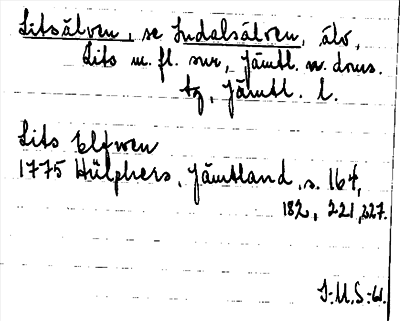 Litsälven, se Indalsälven, älv,
Lits m. fl. snr, Jämtl. n. doms.
tg, Jämtl. l.
Lits Elfwen
1775 Hülphers, Jämtland, s. 164,
182, 221, 227.